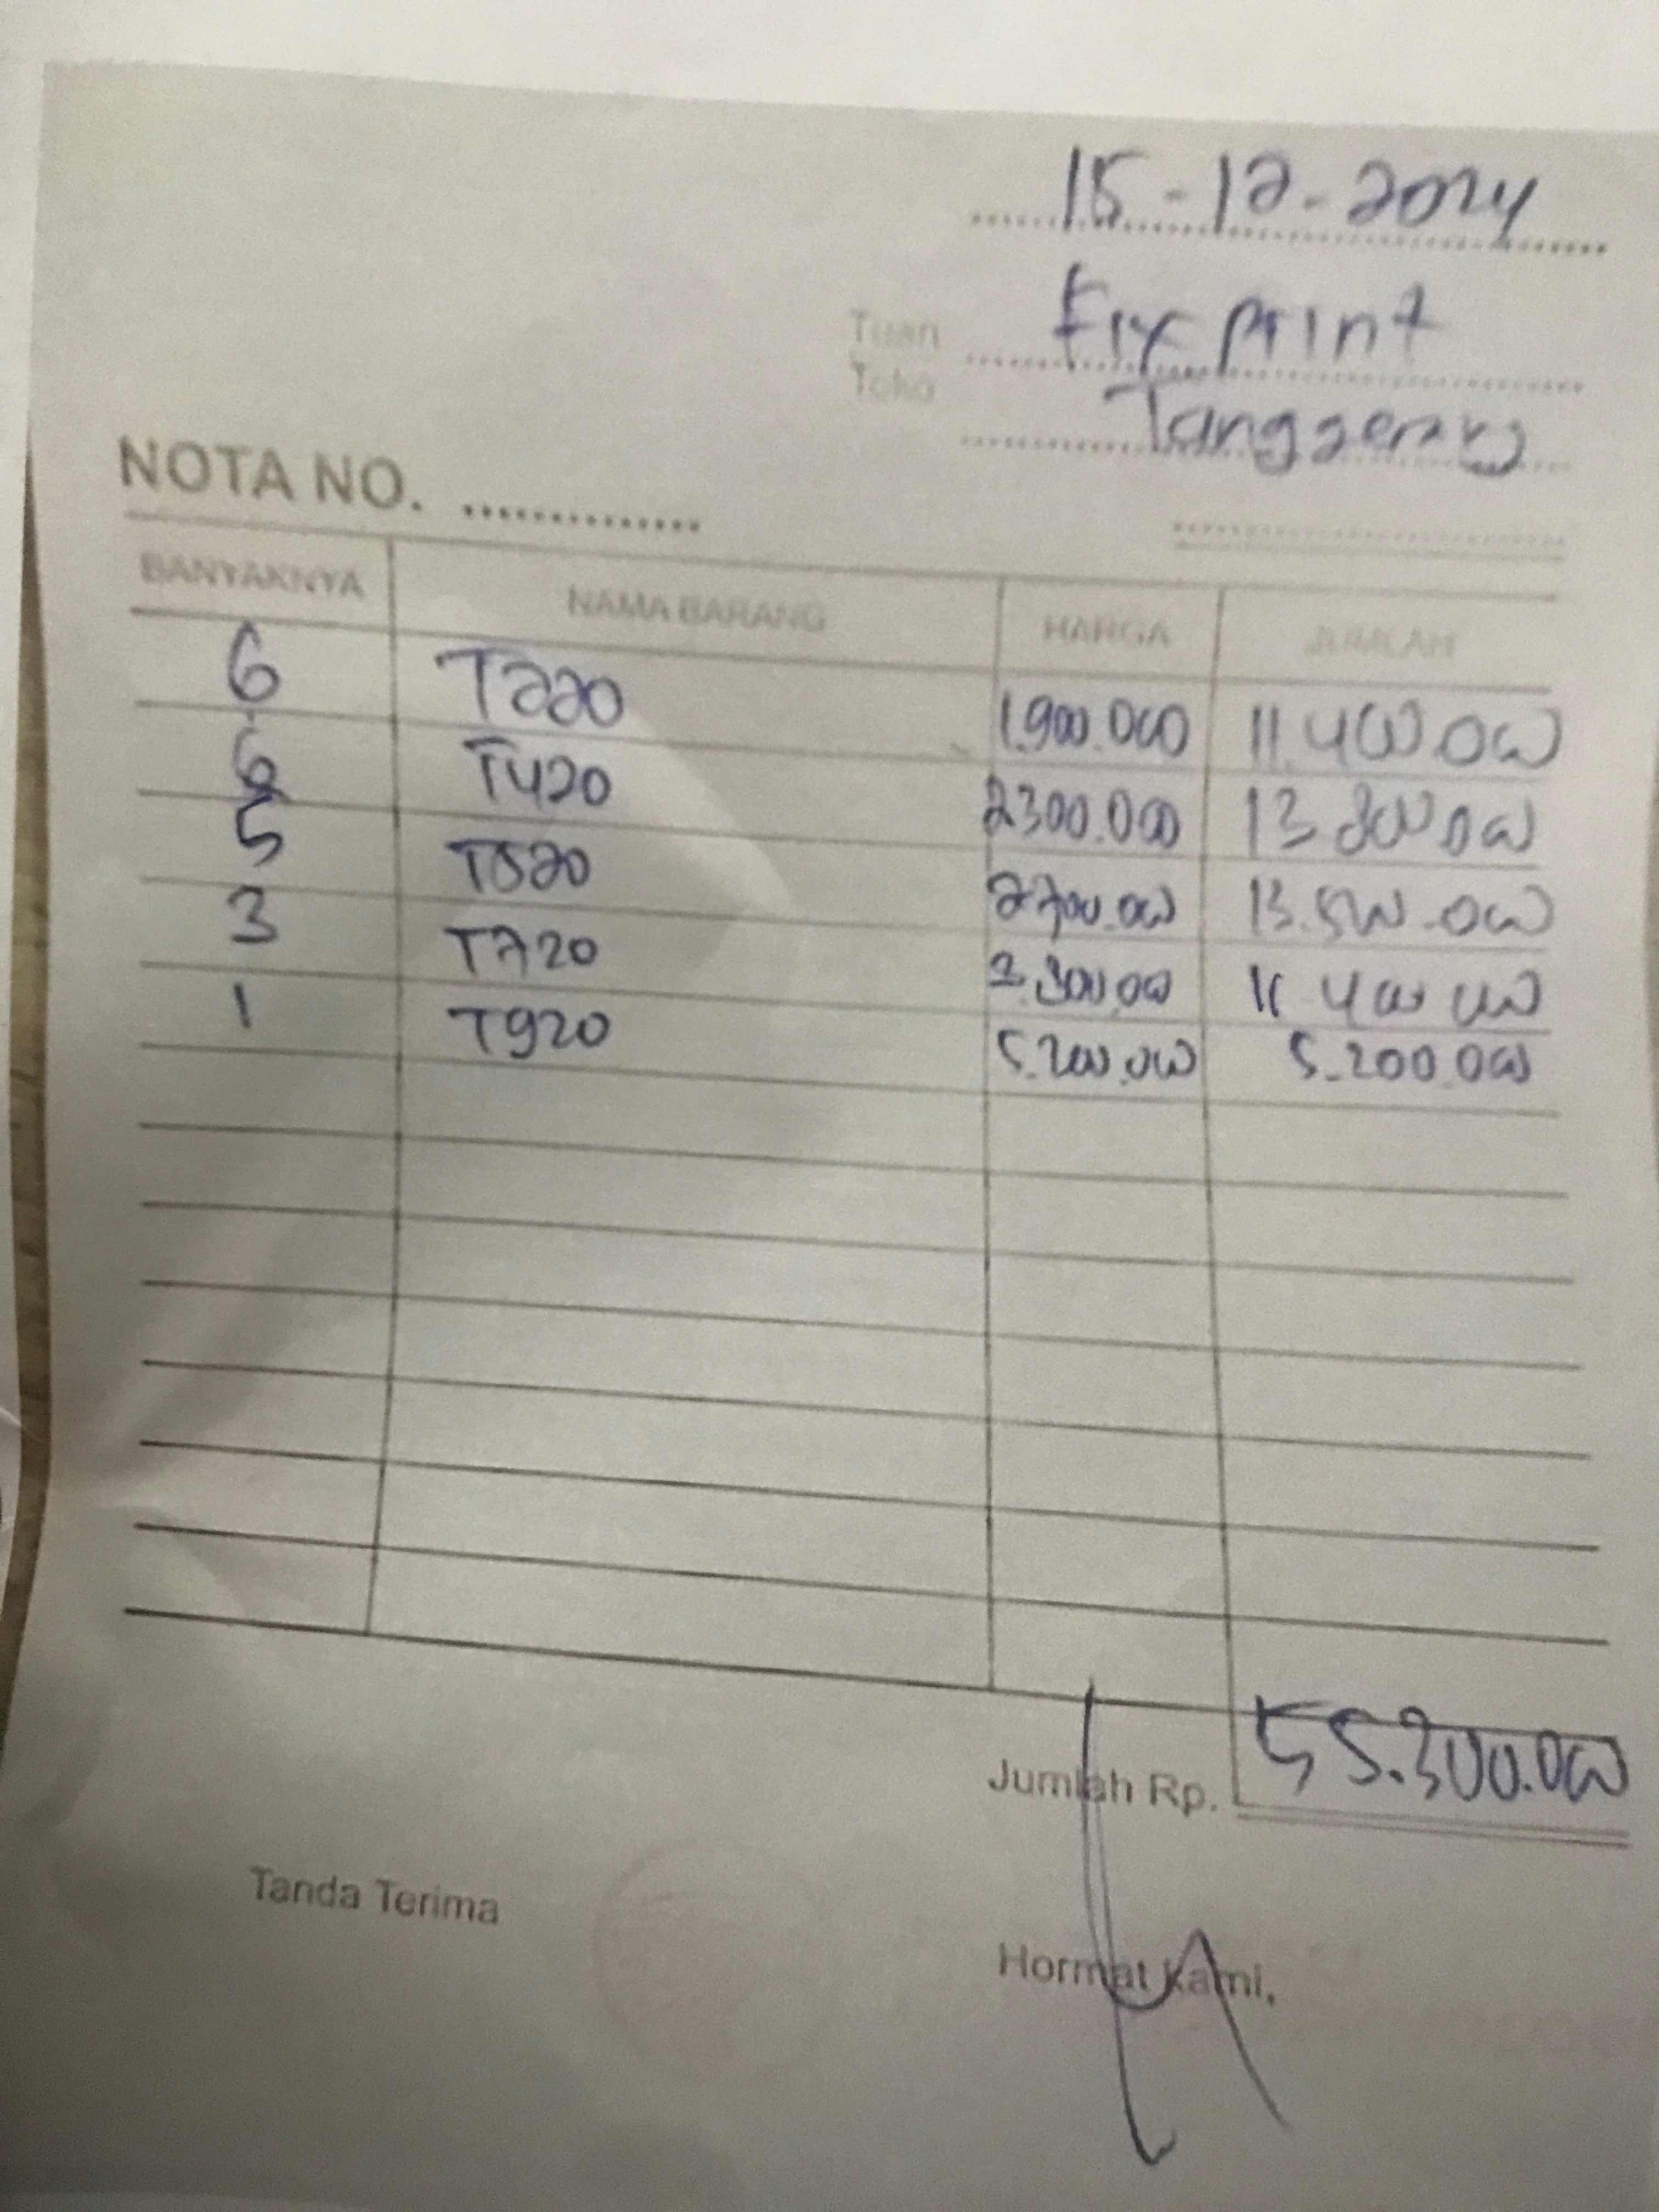 15-12-2024
Tuan Fix print
Toko Tanggerang
NOTA NO. ..............
BANYAKNYA NAMA BARANG HARGA JUMLAH
6 T220 1.900.000 11.400.000
6 T420 2300.000 13.800.000
5 T520 2700.000 13.500.000
3 T720 11.400.000
1 T920 5.200.000 5.200.000
Jumlah Rp. 55.300.000
Tanda Terima
Hormat Kami,